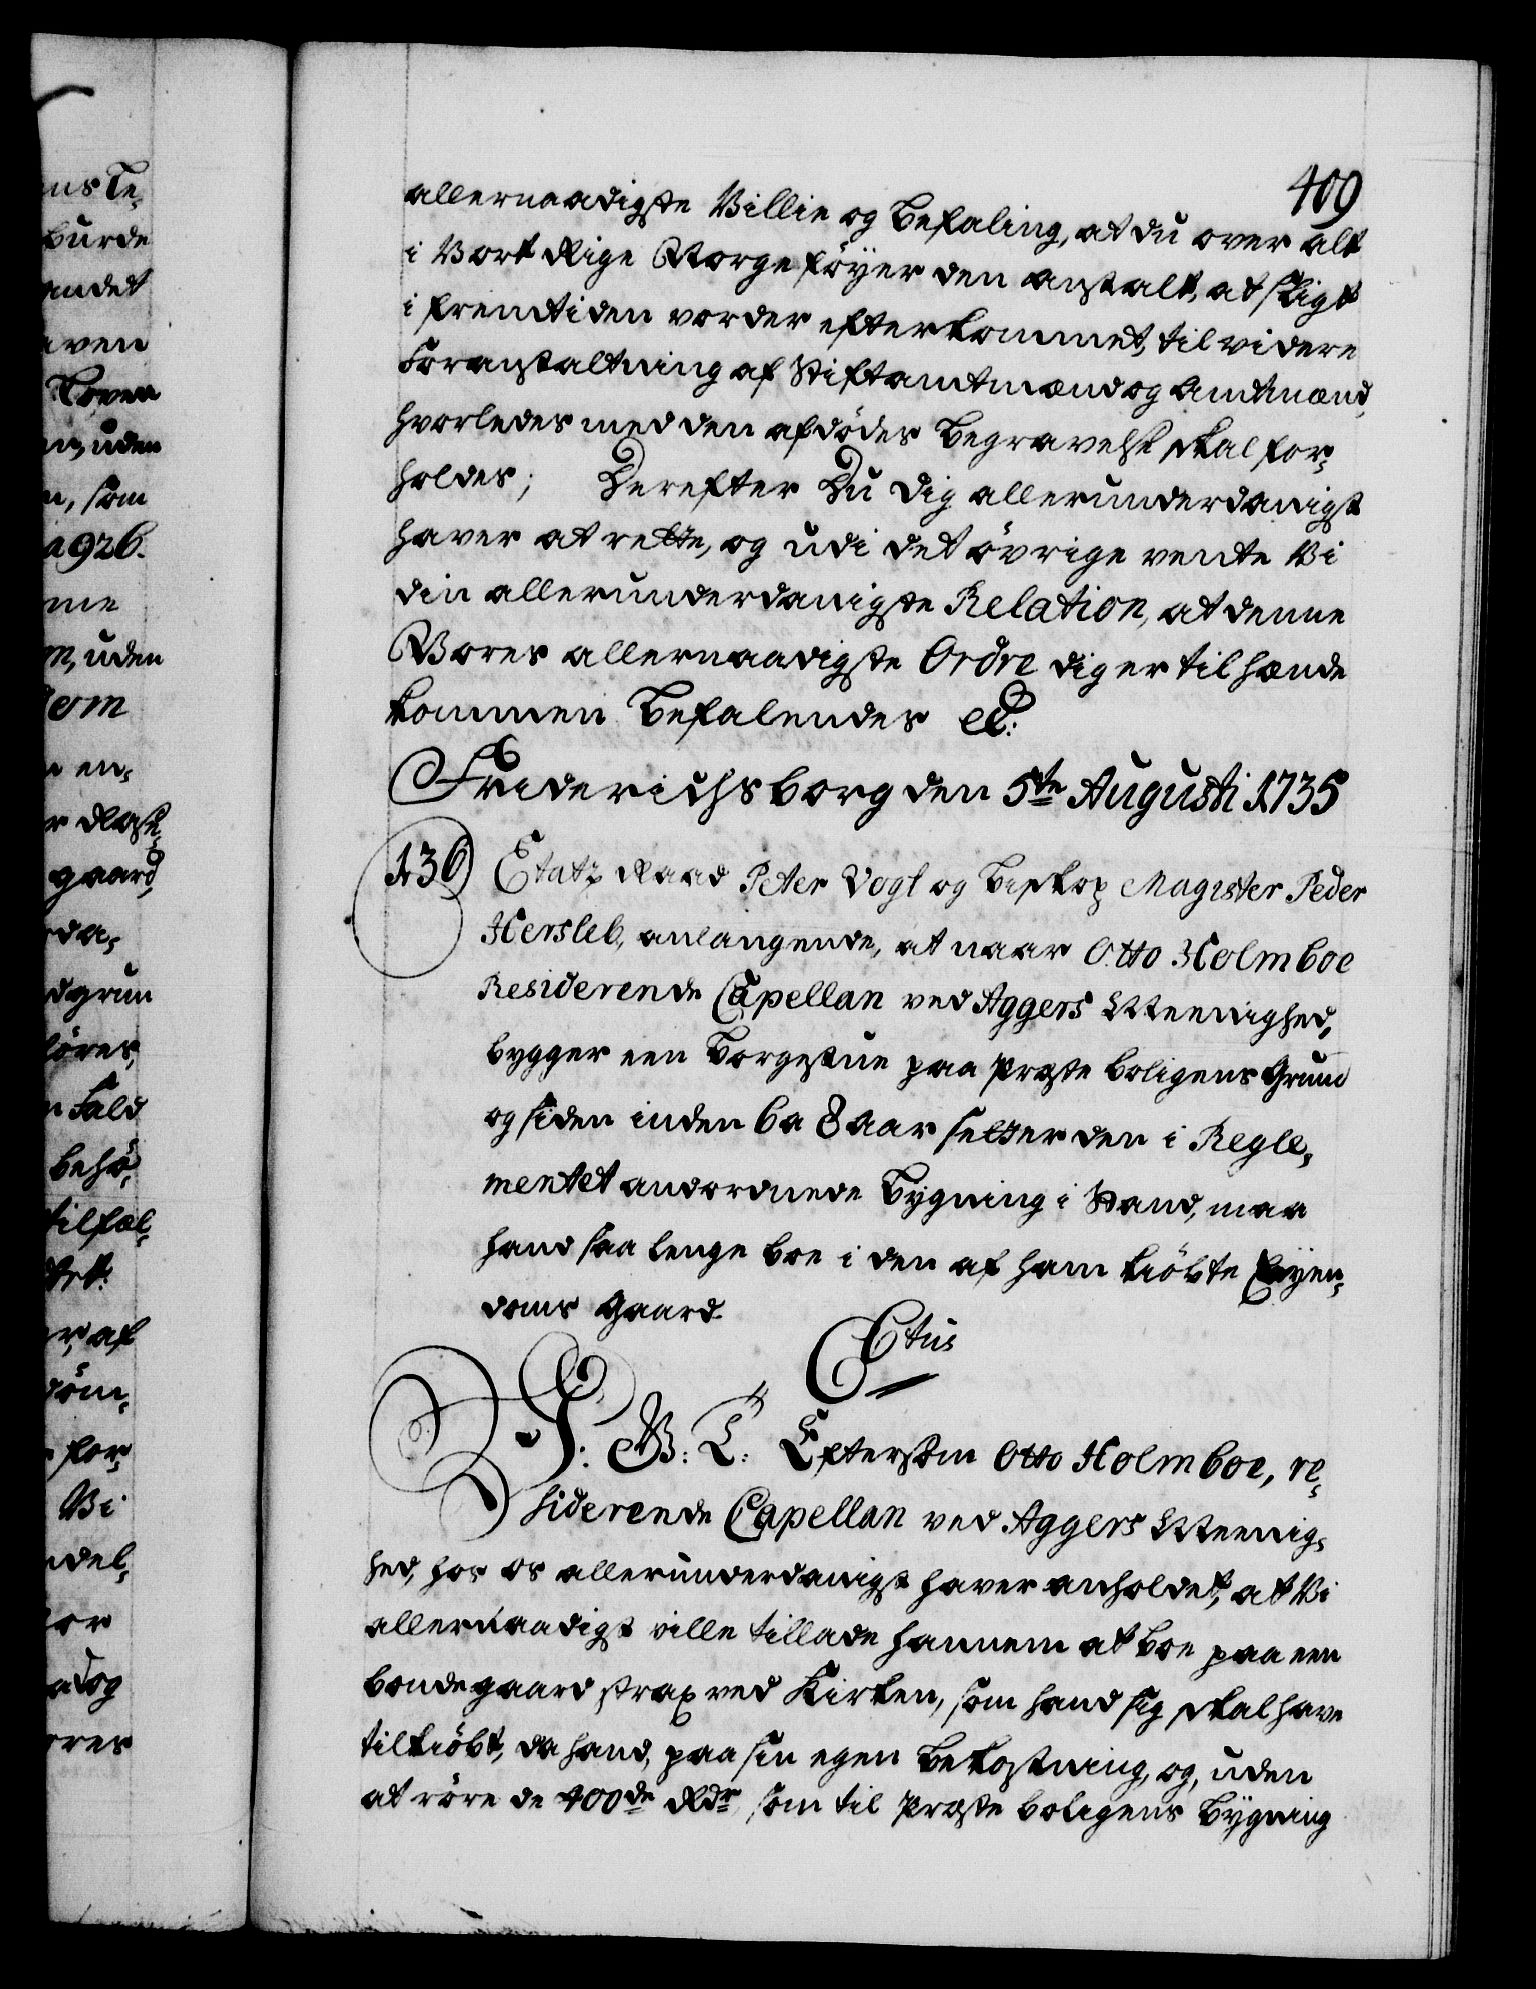 409
allernaadigste Villie og Befaling, at du over alt
i Vort Rige Norge föyer den anstalt, at sligt
i fremtiden vorder efterkommet, til videre
Foranstaltning af Stiftamtmænd og Amtmænd,
hvorledes med den afdödes Begravelse skal for-
holdes; Derefter Du dig allerunderdanigst
haver at rette, og udi det övrige vente Vi
din allerunderdanigste Relation, at denne
Vores allernaadigste Ordre dig er til hænde
kommen Befalendes etc:
Friderichsborg den 5te Augusti 1735
136 Etatz Raad Peter Vogt og Biskop Magister Peder
Hersleb, anlangende, at naar Otto Holmboe
Residerende Capellan ved Aggers Meenighed,
bygger een Borgestue paa Præste boligens Grund
og siden inden 6 a 8 aar setter den i Regle-
mentet anordnede Bygning i Stand, maa
hand saa lenge boe i den af ham kiöbte Eyen-
doms Gaard.
C6tus
V: G: T: Eftersom Otto Holmboe, re-
siderende Capellan ved Aggers Meenig-
hed, hos os allerunderdanigst haver anholdet, at Vi
allernaadigst ville tillade hannem at boe paa een
bondegaard strax ved Kirken, som hand sig skal have
tilkiöbt, da hand, paa sin egen Bekostning, og, uden
at röre de 400de Rdr, som til Præste boligens Bygning
ns Te-
burde
andet
aven
Loven
n, uden
n, som
a 926.
me
m, uden
om
en-
r Rose-
gaard,
da-
dgrun
föres,
n Fald
behö-
tilfæl-
r, af
döm-
for-
Vi
ndel-
or
ad og
ores